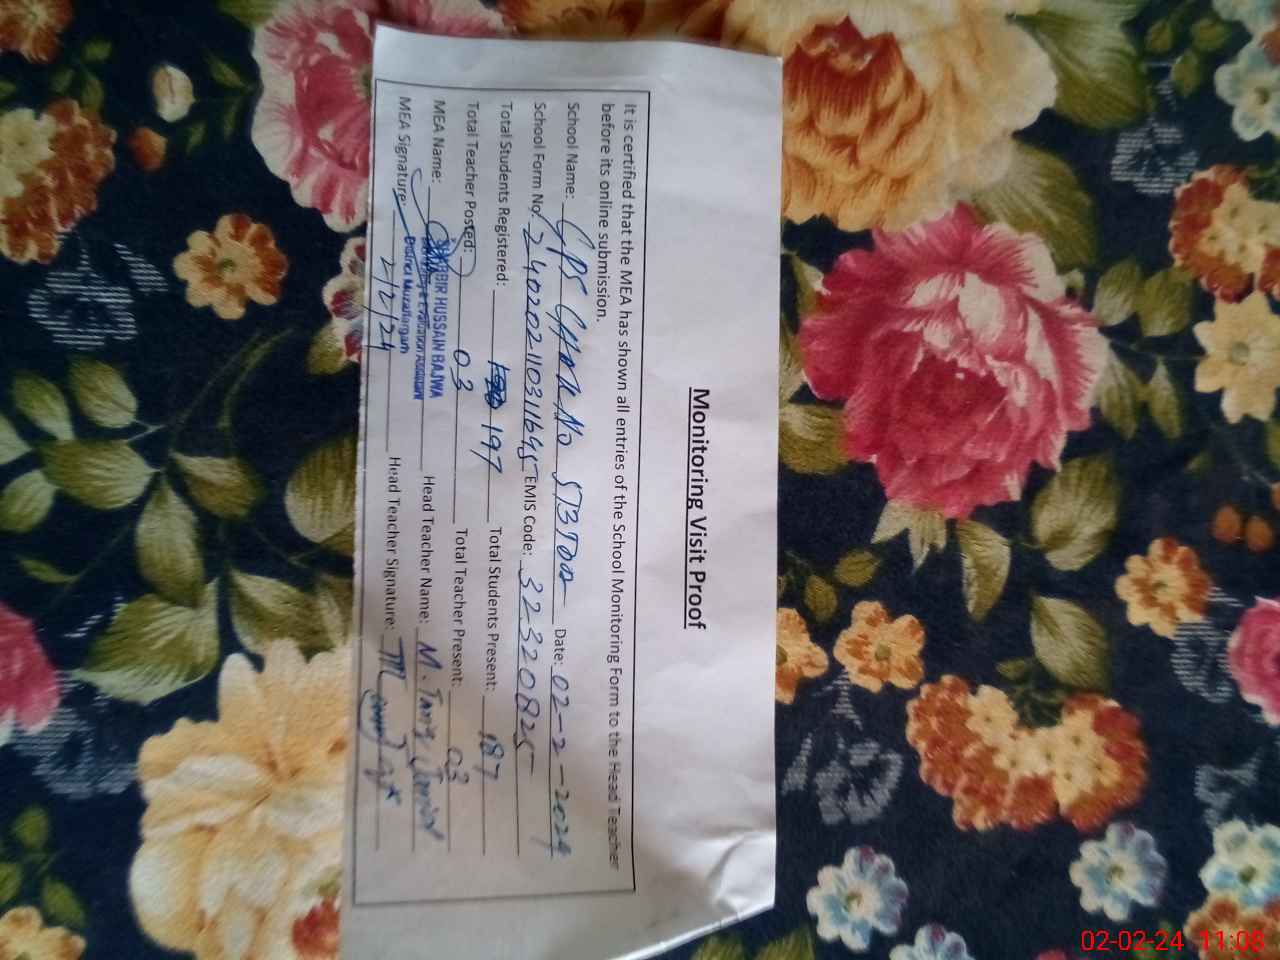 Monitoring Visit Proof
It is certified that the MEA has shown all entries of the School Monitoring Form to the Head Teacher
before its online submission.
School Name: GPS CHAK No 573TDA Date: 02-2-2024
School Form No: 240202110311645 EMIS Code: 32320825
Total Students Registered: 197 Total Students Present: 187
Total Teacher Posted: 03 Total Teacher Present: 03
MEA Name: HUSSAIN BAJWA Head Teacher Name: M. Tariq Javed
District Muzaffargarh
MEA Signature: 2/2/24 Head Teacher Signature:
02-02-24 11:08